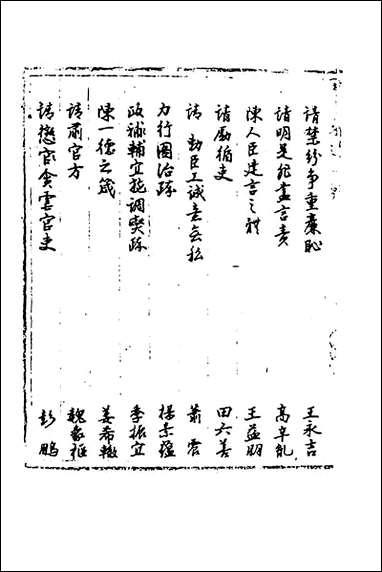 請禁紛爭重廉恥 王永吉
請明是非盡言責 高辛胤
陳人臣建言之體 王益朋
請勵循吏 田六善
請勅臣工誠意無私 蕭震
力行圖治疏 楊素蘊
政端輔宜詫調燮疏 季振宜
陳一德之箴 姜希轍
請肅官方 魏象樞
請懲官貪害官吏 彭鵬